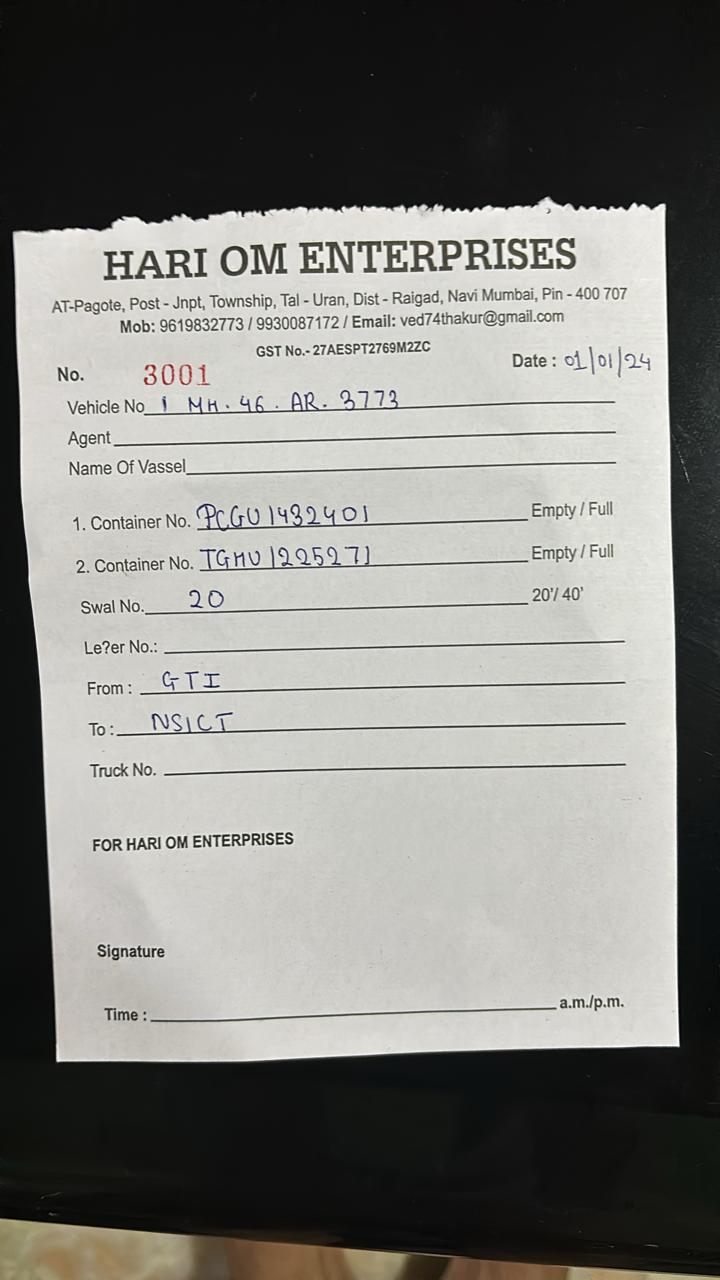 HARI OM ENTERPRISES
AT-Pagote, Post - Jnpt, Township, Tal - Uran, Dist - Raigad, Navi Mumbai, Pin - 400 707
Mob: 9619832773 / 9930087172 / Email: ved74thakur@gmail.com
GST No.- 27AESPT2769M2ZC
No. 3001 Date : 01/01/24
Vehicle No MH. 46. AR. 3773
Agent
Name Of Vassel
1. Container No. PCGU1432401 Empty / Full
2. Container No. TGHU1225271 Empty / Full
Swal No. 20 20'/ 40'
Le?er No.:
From : GTI
To : NSICT
Truck No.
FOR HARI OM ENTERPRISES
Signature
Time : a.m./p.m.